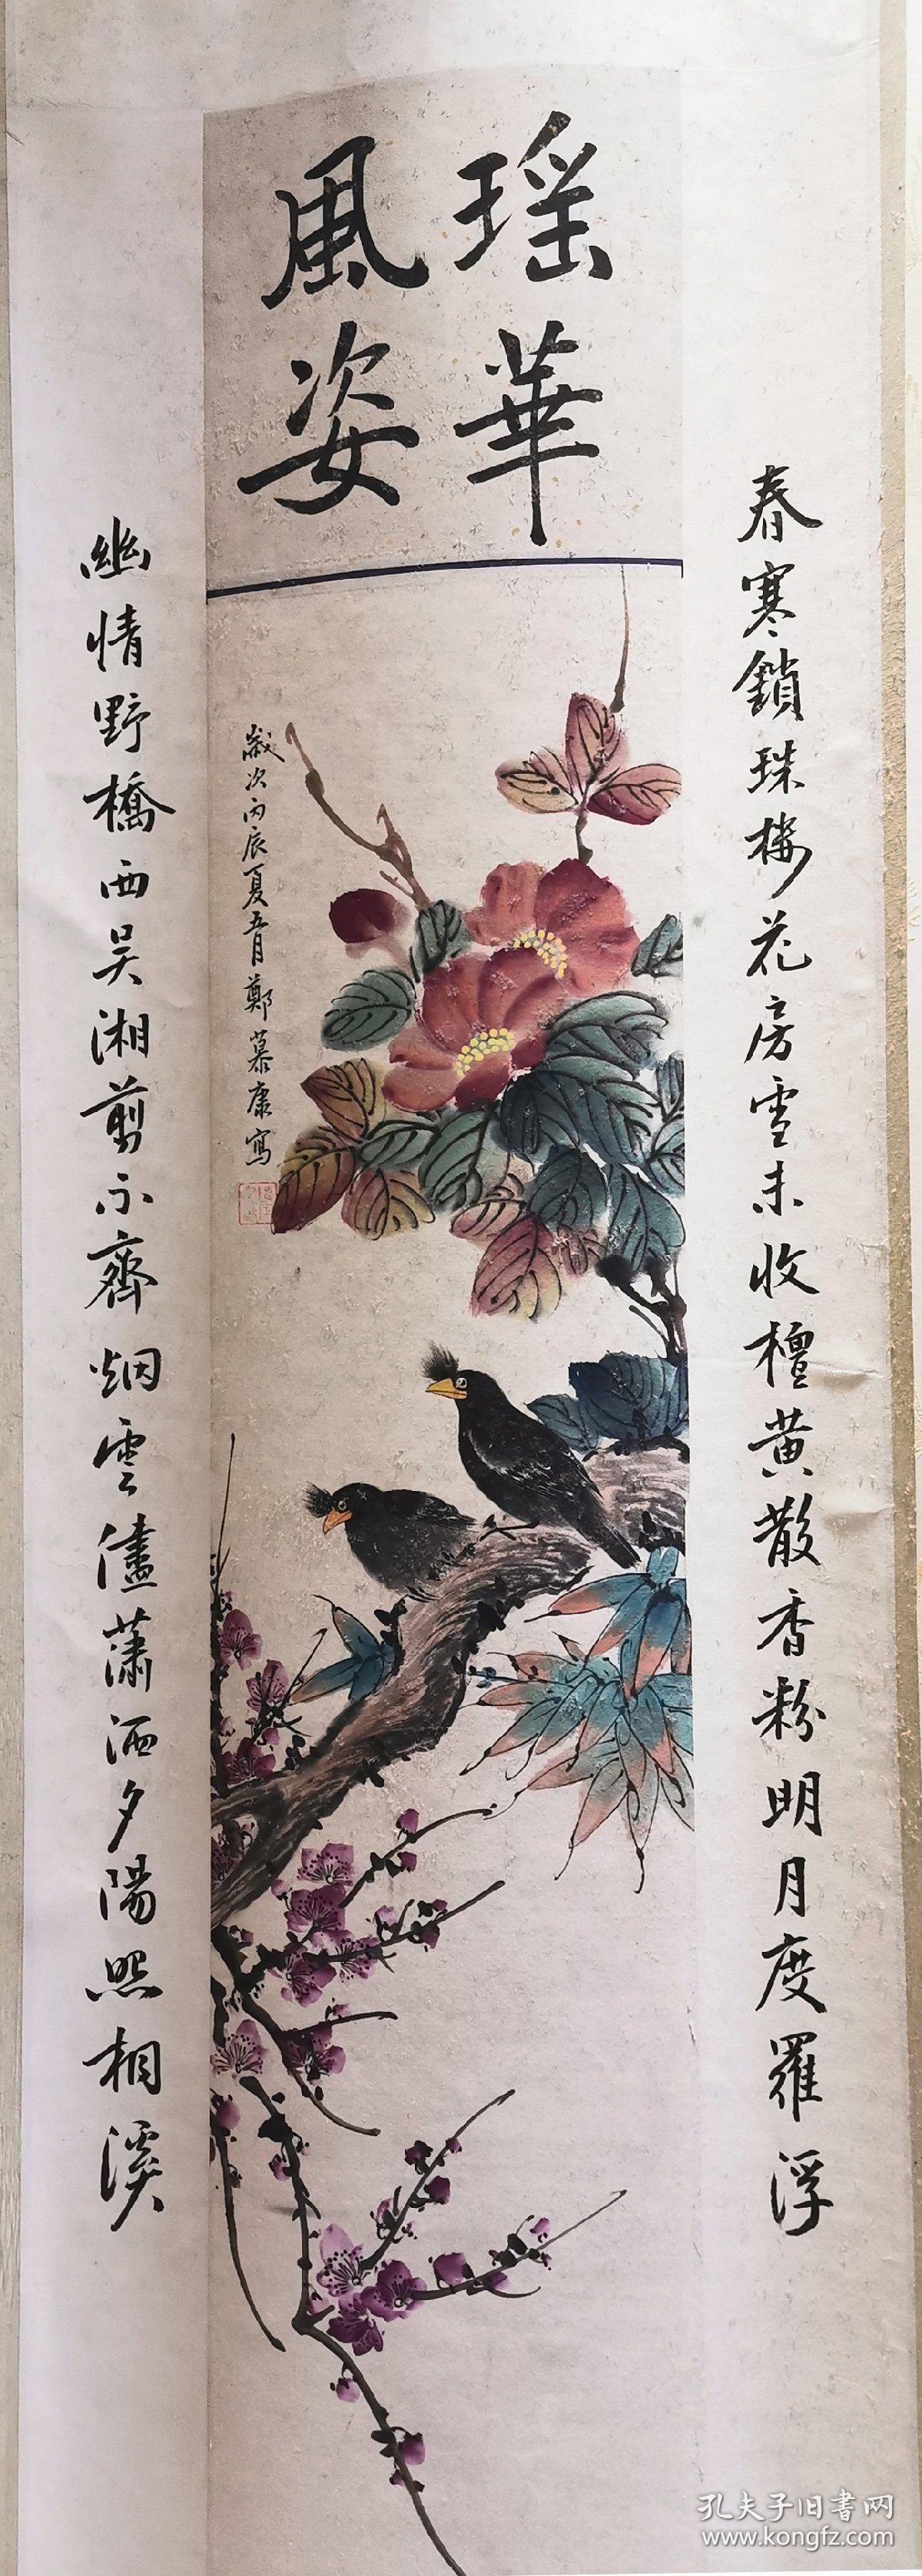 瑶華
風姿
春寒鎖珠樓花房雪未收檀黄散香粉明月度羅浮
歲次丙辰夏五月鄭慕康寫
幽情野橋西吴湘剪不齊烟雲儘蕭洒夕陽照相溪
孔夫子旧書网
www.kongfz.com